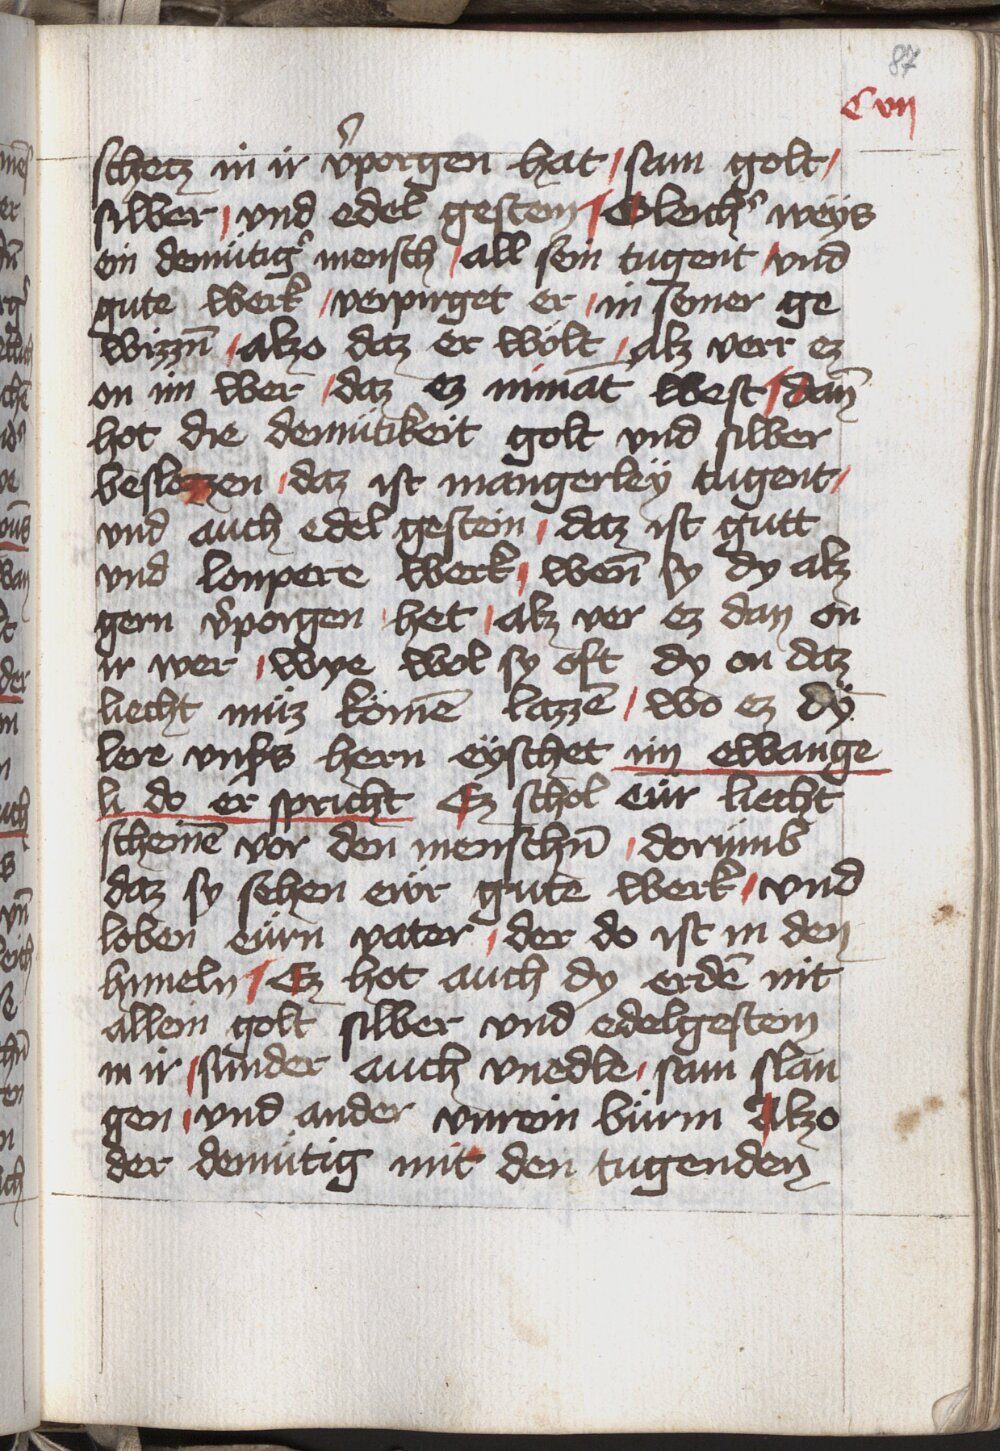 87
C vii
schetz in ir v̓porgen hat / sam golt /
silber / vnd edel gestein / Gleich᷎ weÿs
ein demütig᷎ mensch / all sein tugent / vnd
gute werk / verpirget er / in seiner ge
wizzn̄ / alzo daz er wölt / alz verr ez
on im wer / daz ez nimāt west / dan̄
hot die demütikeit golt vnd silber
beslozzen / daz ist mangerleÿ tugent /
vnd auch edel gestein / daz ist gutt
vnd loupere werk / wen̄ sy dy alz
gern v̓porgen het / alz ver ez dan on
ir wer / wye wol sy oft dy on daz
liecht müz kömē lazzē / wo ez dÿ
lere vnſs hern eÿschet im ewange
li do er spricht Ez schol eür liecht
scheinē vor den menschn̄ / dorümb
daz sy sehen ewr gute werk / vnd
loben eürn vater / der do ist in den
himeln / Ez hot auch dy erdē nit
allein golt silber vnd edelgestein
in ir / sünder auch vnedle / sam slan
gen / vnd ander vnrein würm Alzo
der demütig mit den tugenden